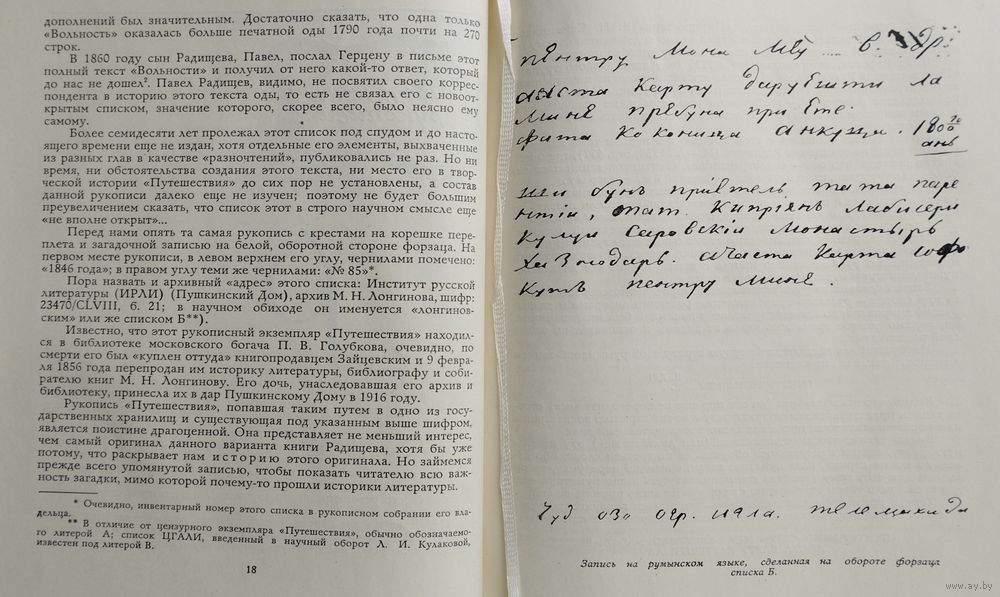 дополнений был значительным. Достаточно сказать, что одна только
«Вольность» оказалась больше печатной оды 1790 года почти на 270
строк.
В 1860 году сын Радищева, Павел, послал Герцену в письме этот
полный текст «Вольности» и получил от него какой-то ответ, который
до нас не дошел². Павел Радищев, видимо, не посвятил своего коррес-
пондента в историю этого текста оды, то есть не связал его с новоот-
крытым списком, значение которого, скорее всего, было неясно ему
самому.
Более семидесяти лет пролежал этот список под спудом и до насто-
ящего времени еще не издан, хотя отдельные его элементы, выхваченные
из разных глав в качестве «разночтений», публиковались не раз. Но ни
время, ни обстоятельства создания этого текста, ни место его в твор-
ческой истории «Путешествия» до сих пор не установлены, а состав
данной рукописи далеко еще не изучен; поэтому не будет большим
преувеличением сказать, что список этот в строго научном смысле еще
«не вполне открыт»...
Перед нами опять та самая рукопись с крестами на корешке пере-
плета и загадочной записью на белой, оборотной стороне форзаца. На
первом месте рукописи, в левом верхнем его углу, чернилами помечено:
«1846 года»; в правом углу теми же чернилами: «№ 85»*.
Пора назвать и архивный «адрес» этого списка: Институт русской
литературы (ИРЛИ) (Пушкинский Дом), архив М. Н. Лонгинова, шифр:
23470/CLVIII, б. 21; в научном обиходе он именуется «лонгинов-
ским» или же списком Б**).
Известно, что этот рукописный экземпляр «Путешествия» находил-
ся в библиотеке московского богача П. В. Голубкова, очевидно, по
смерти его был «куплен оттуда» книгопродавцем Зайцевским и 9 февра-
ля 1856 года перепродан им историку литературы, библиографу и соби-
рателю книг М. Н. Лонгинову. Его дочь, унаследовавшая его архив и
библиотеку, принесла их в дар Пушкинскому Дому в 1916 году.
Рукопись «Путешествия», попавшая таким путем в одно из госу-
дарственных хранилищ и существующая под указанным выше шифром,
является поистине драгоценной. Она представляет не меньший интерес,
чем самый оригинал данного варианта книги Радищева, хотя бы уже
потому, что раскрывает нам историю этого оригинала. Но займемся
прежде всего упомянутой записью, чтобы показать читателю всю важ-
ность загадки, мимо которой почему-то прошли историки литературы.
* Очевидно, инвентарный номер этого списка в рукописном собрании его вла-
дельца.
** В отличие от цензурного экземпляра «Путешествия», обычно обозначаемо-
го литерой А; список ЦГАЛИ, введенный в научный оборот Л. И. Кулаковой,
известен под литерой В.
18
пентру мона
карту
мине
анкуци. 1800
шки бунъ приетель тата паре
Киприянъ
Саровскiи монастырь
карта
пентру мине.
Чуд озо огр.
Запись на румынском языке, сделанная на обороте форзаца
списка Б.
www.ay.by